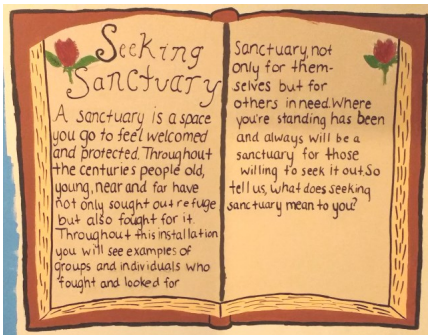 Seeking
Sanctuary
A sanctuary is a space
you go to feel welcomed
and protected. Throughout
the centuries people old,
young, near and far have
not only sought out refuge
but also fought for it.
Throughout this installation
you will see examples of
groups and individuals who
fought and looked for
Sanctuary, not
only for them-
selves but for
others in need. Where
you're standing has been
and always will be a
sanctuary for those
willing to seek it out. So
tell us, what does seeking
sanctuary mean to you?